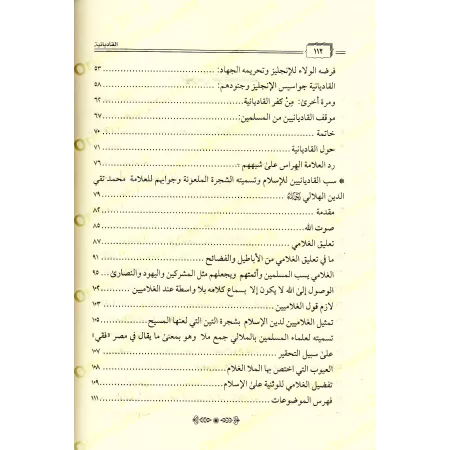 القاديانية
١١٢
فرضه الولاء للإنجليز وتحريمه الجهاد: ٥٣
القاديانية جواسيس الإنجليز وجنودهم: ٥٨
ومرة أخرى: مِنْ كفر القاديانية ٦٢
موقف القاديانيين من المسلمين: ٦٧
خاتمة ٧٠
حول القاديانية ٧١
رد العلامة الهراس على شبههم ٧٦
* سب القاديانيين للإسلام وتسميته الشجرة الملعونة وجوابهم للعلامة محمد تقي
الدين الهلالي ٧٩
مقدمة ٨٢
صوت الله ٨٥
تعليق الغلامي ٨٧
ما في تعليق الغلامي من الأباطيل والفضائح ٩١
الغلامي يسب المسلمين وأئمتهم ويجعلهم مثل المشركين واليهود والنصارى ٩٥
الوصول إلى الله لا يكون إلا بسماع كلامه بلا واسطة عند الغلاميين ١٠٢
لازم قول الغلاميين ١٠٣
تمثيل الغلاميين لدين الإسلام بشجرة التين التي لعنها المسيح ١٠٥
تسميته لعلماء المسلمين بالملالي جمع ملا وهو بمعنى ما يقال في مصر «فقي»
على سبيل التحقير ١٠٧
العيوب التي اختص بها الملا الغلام ١٠٨
تفضيل الغلامي للوثنية على الإسلام ١٠٩
فهرس الموضوعات ١١١